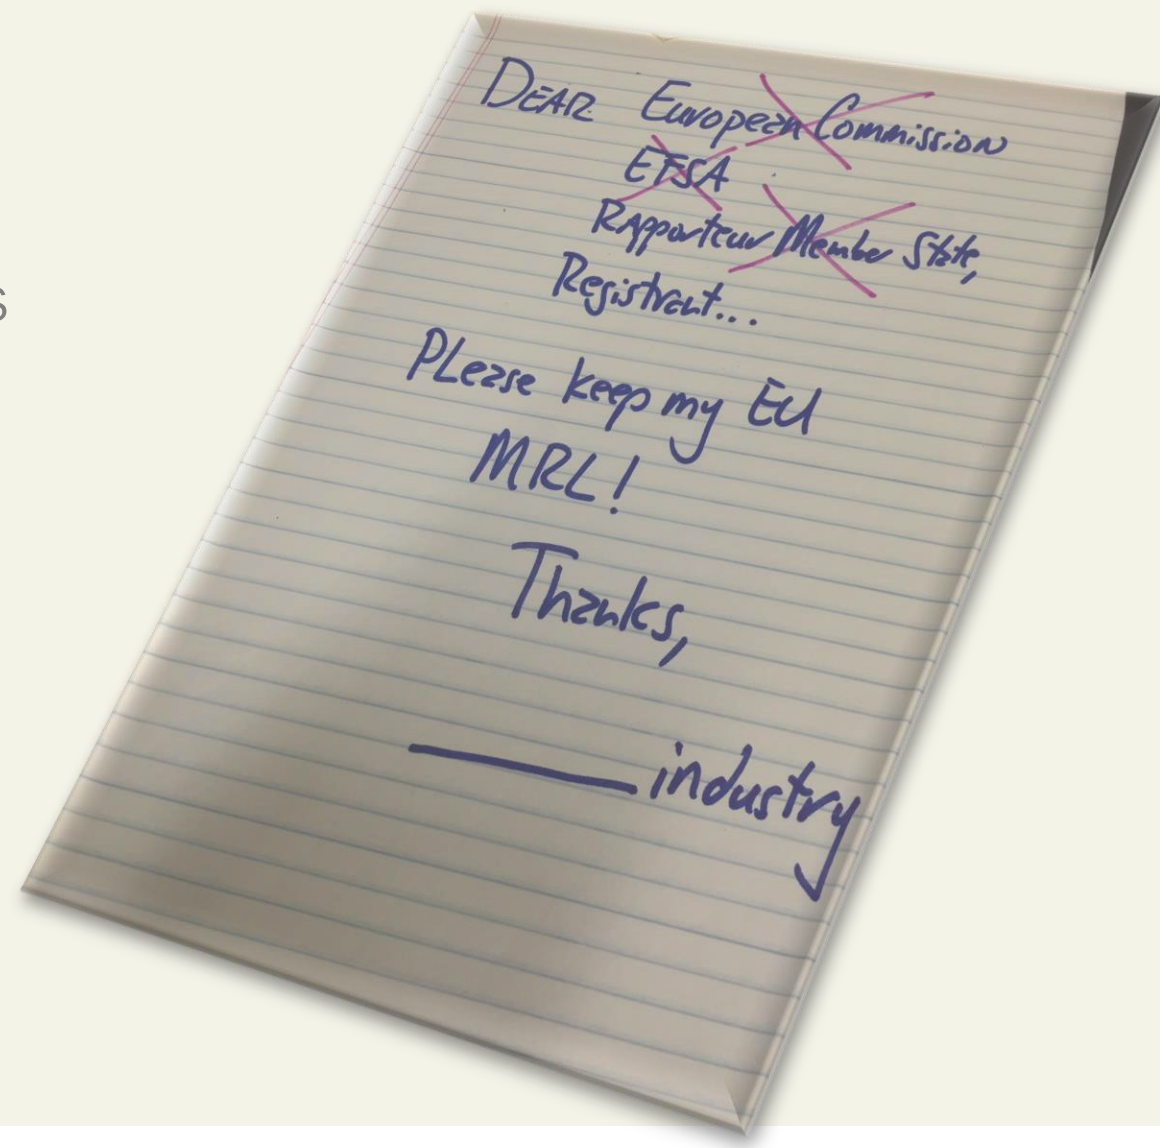 s
DEAR European Commission
EFSA
Rapporteur Member State,
Registrant...
Please keep my EU
MRL!
Thanks,
industry